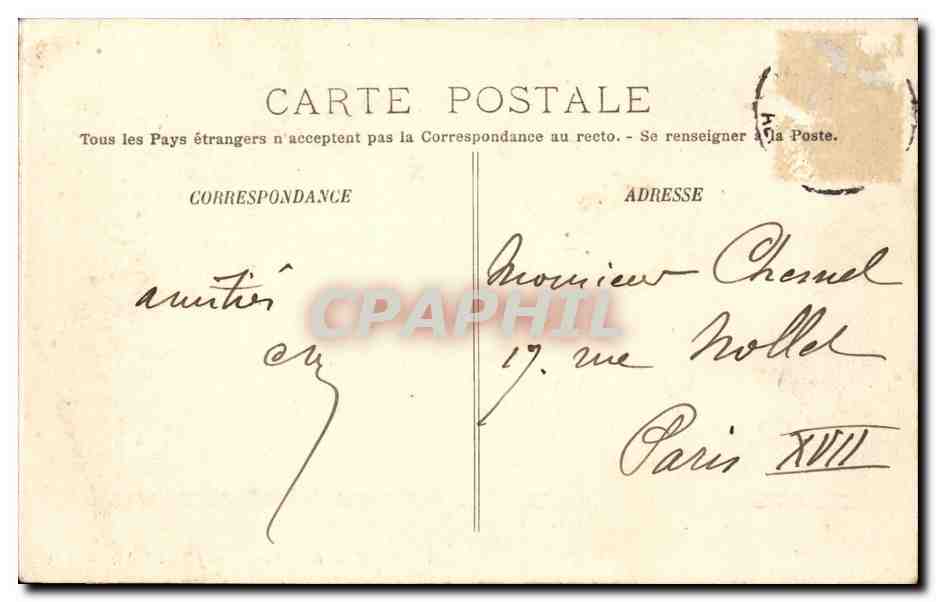 CARTE POSTALE
Tous les Pays étrangers n'acceptent pas la Correspondance au recto. - Se renseigner à la Poste.
CORRESPONDANCE
amitiés
ADRESSE
Monsieur Chesnel
19. rue Nollet
Paris XVII
CPAPHIL